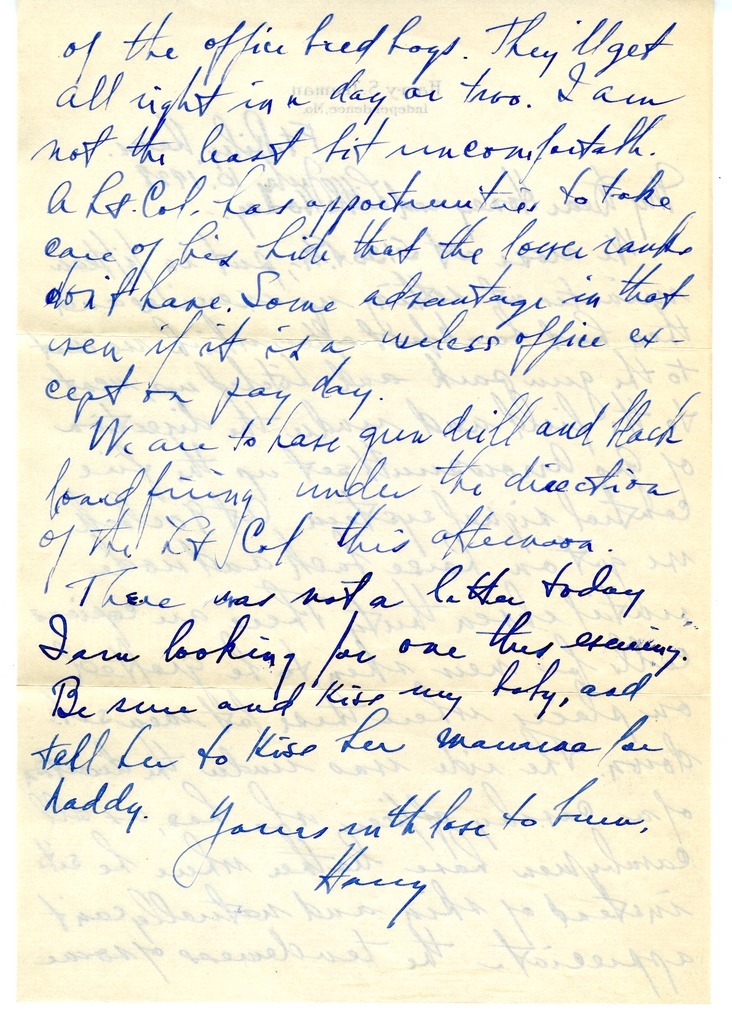 of the office bred boys. They'll get
all right in a day or two. I am
not the least bit uncomfortable.
A Lt. Col. has opportunities to take
care of his hide that the lower ranks
don't have. Some advantage in that
even if it is a useless office ex-
cept on pay day.
We are to have gun drill and black
board firing under the direction
of the Lt Col this afternoon.
There was not a letter today
I am looking for one this evening.
Be sure and kiss my baby, and
tell her to kiss her mamma for
daddy.
Yours with love to burn,
Harry